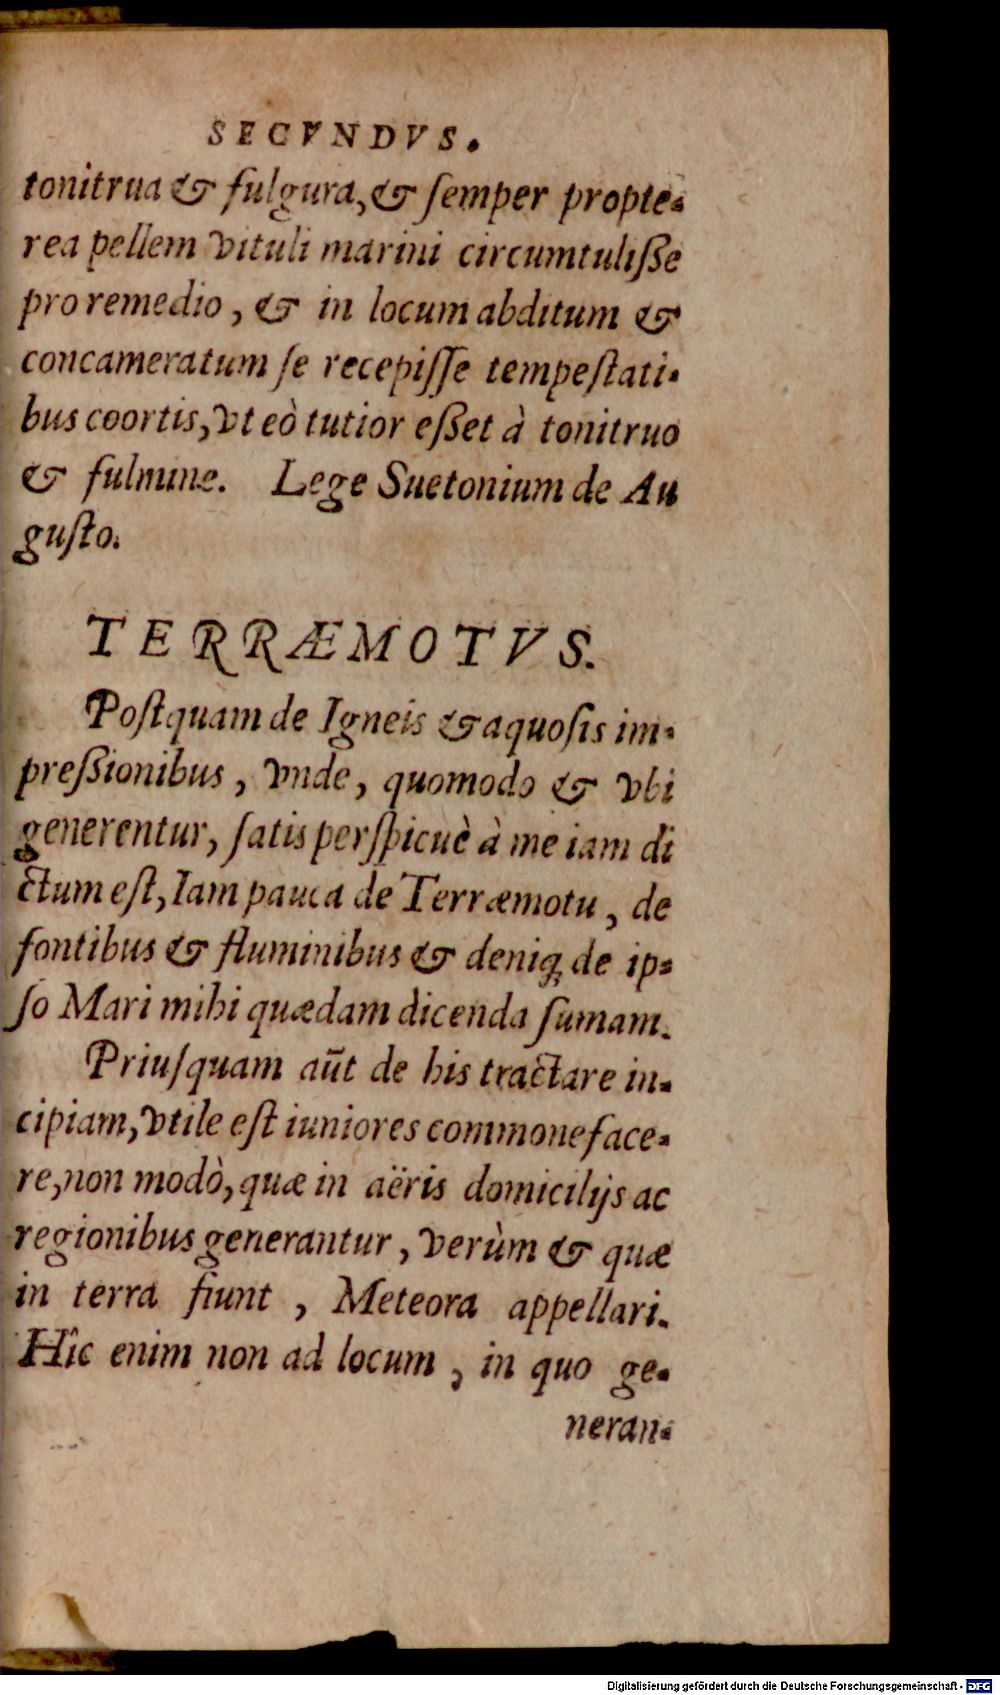 SECVNDVS.
tonitrua & fulgura, & ſemper propte-
rea pellem vituli marini circumtuliſſe
pro remedio, & in locum abditum &
concameratum ſe recepiſſe tempeſtati-
bus coortis, vt eò tutior eſſet à tonitruo
& fulmine. Lege Suetonium de Au
guſto.
TERRÆMOTVS.
Poſtquam de Igneis & aquoſis im-
preſſionibus, vnde, quomodo & vbi
generentur, ſatis perſpicuè à me iam di
ctum eſt, Iam pauca de Terræmotu, de
fontibus & fluminibus & deniq; de ip-
ſo Mari mihi quædam dicenda ſumam.
Priuſquam aūt de his tractare in-
cipiam, vtile eſt iuniores commoneface-
re, non modò, quæ in aëris domicilijs ac
regionibus generantur, verùm & quæ
in terra fiunt, Meteora appellari.
Hîc enim non ad locum, in quo ge-
neran-
Digitalisierung gefördert durch die Deutsche Forschungsgemeinschaft - DFG